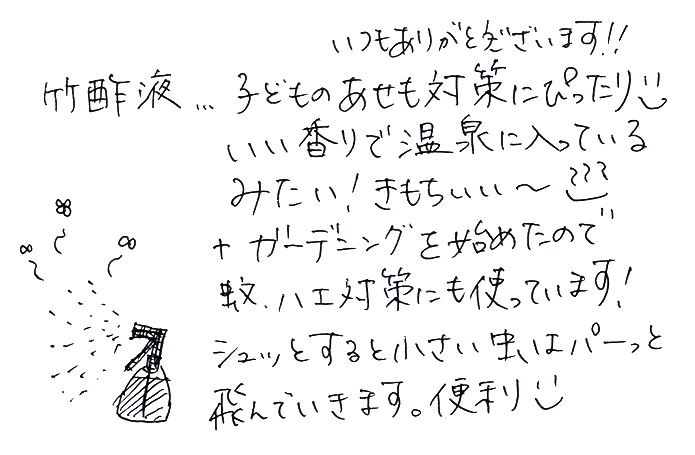 いつもありがとございます!!
竹酢液…子どものあせも対策にぴったり
いい香りで温泉に入っている
みたい!きもちいい〜
+ガーデニングを始めたので
蚊、ハエ対策にも使っています!
シュッとすると小さい虫はパーっと
飛んでいきます。便利